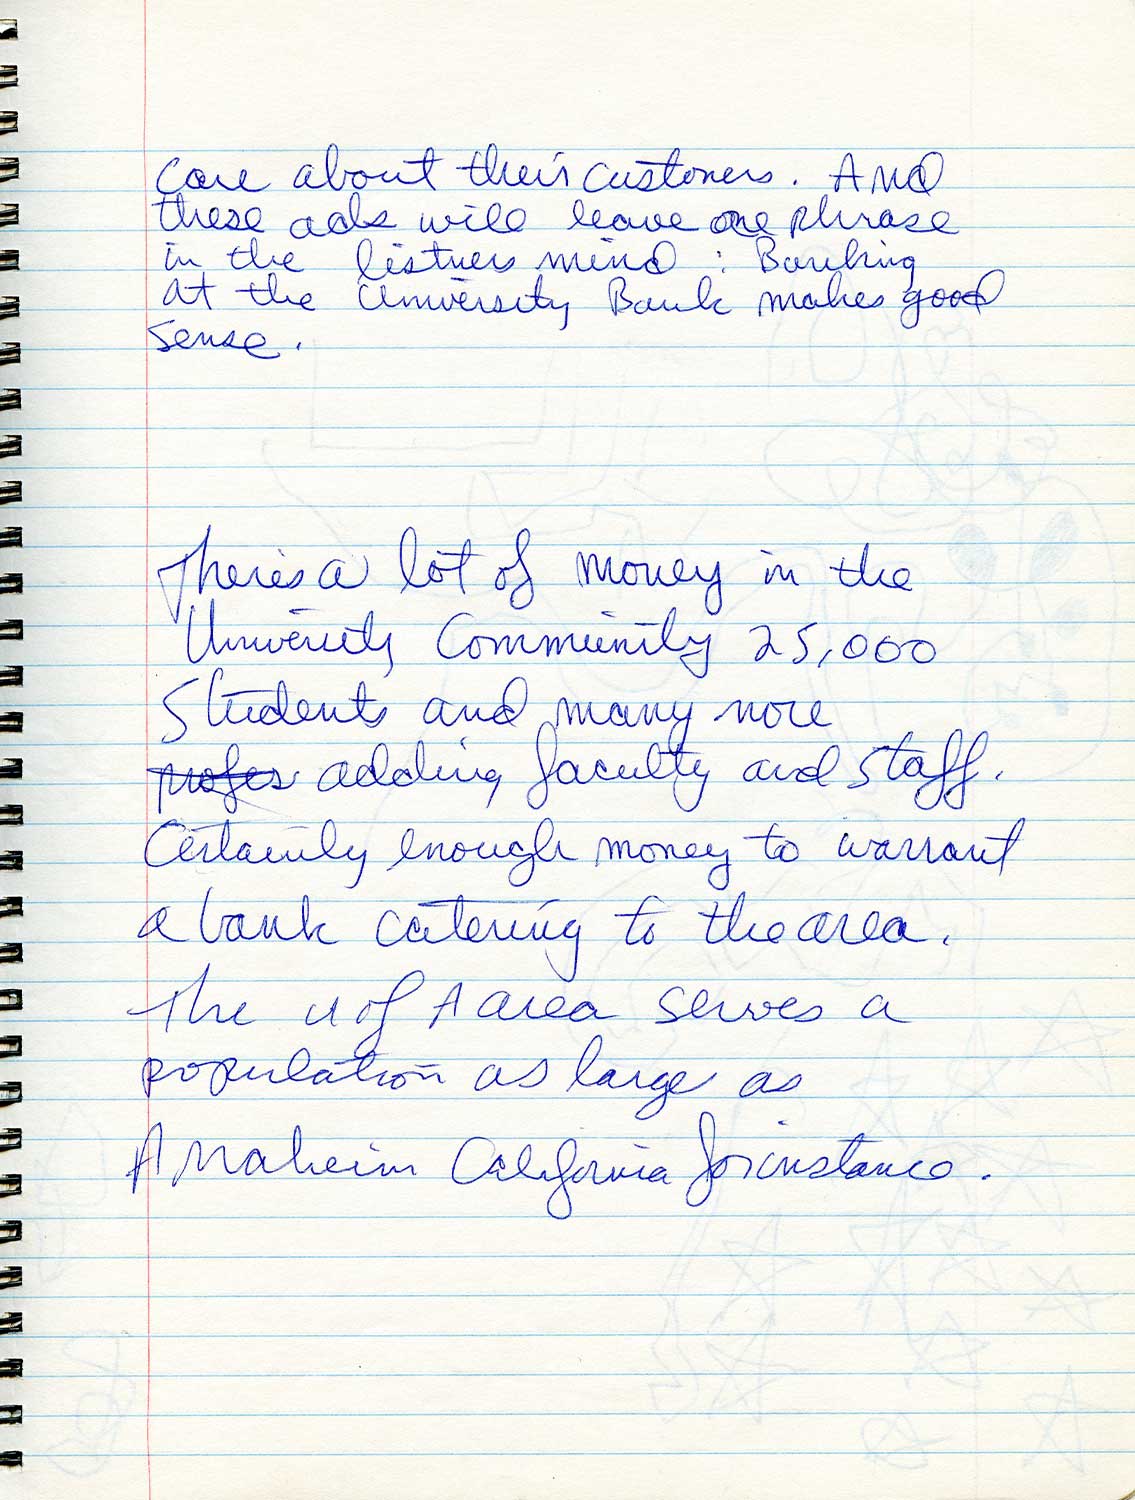 Care about their customers. And
these ads will leave one phrase
in the listners mind : Banking
at the University Bank makes good
sense.
Theres a lot of money in the
University Community 25,000
Students and many more
profes adding faculty and staff.
Certainly enough money to warrant
a bank catering to the area.
The U of A area serves a
population as large as
Anaheim California for instance.